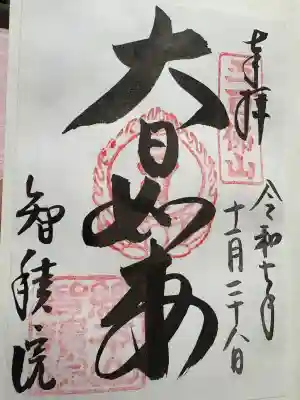 奉拝
令和七年
十一月二十八日
大日如来
智積院